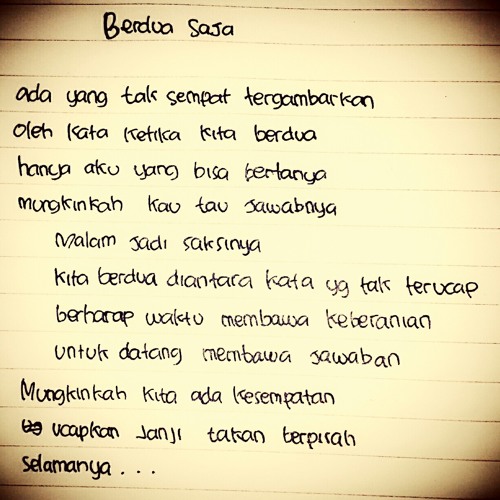 Berdua saja
ada yang tak sempat tergambarkan
oleh kata ketika kita berdua
hanya aku yang bisa bertanya
mungkinkah kau tau jawabnya
Malam jadi saksinya
kita berdua diantara kata yg tak terucap
berharap waktu membawa keberanian
untuk datang membawa jawaban
Mungkinkah kita ada kesempatan
ucapkan janji takan berpisah
selamanya . . .